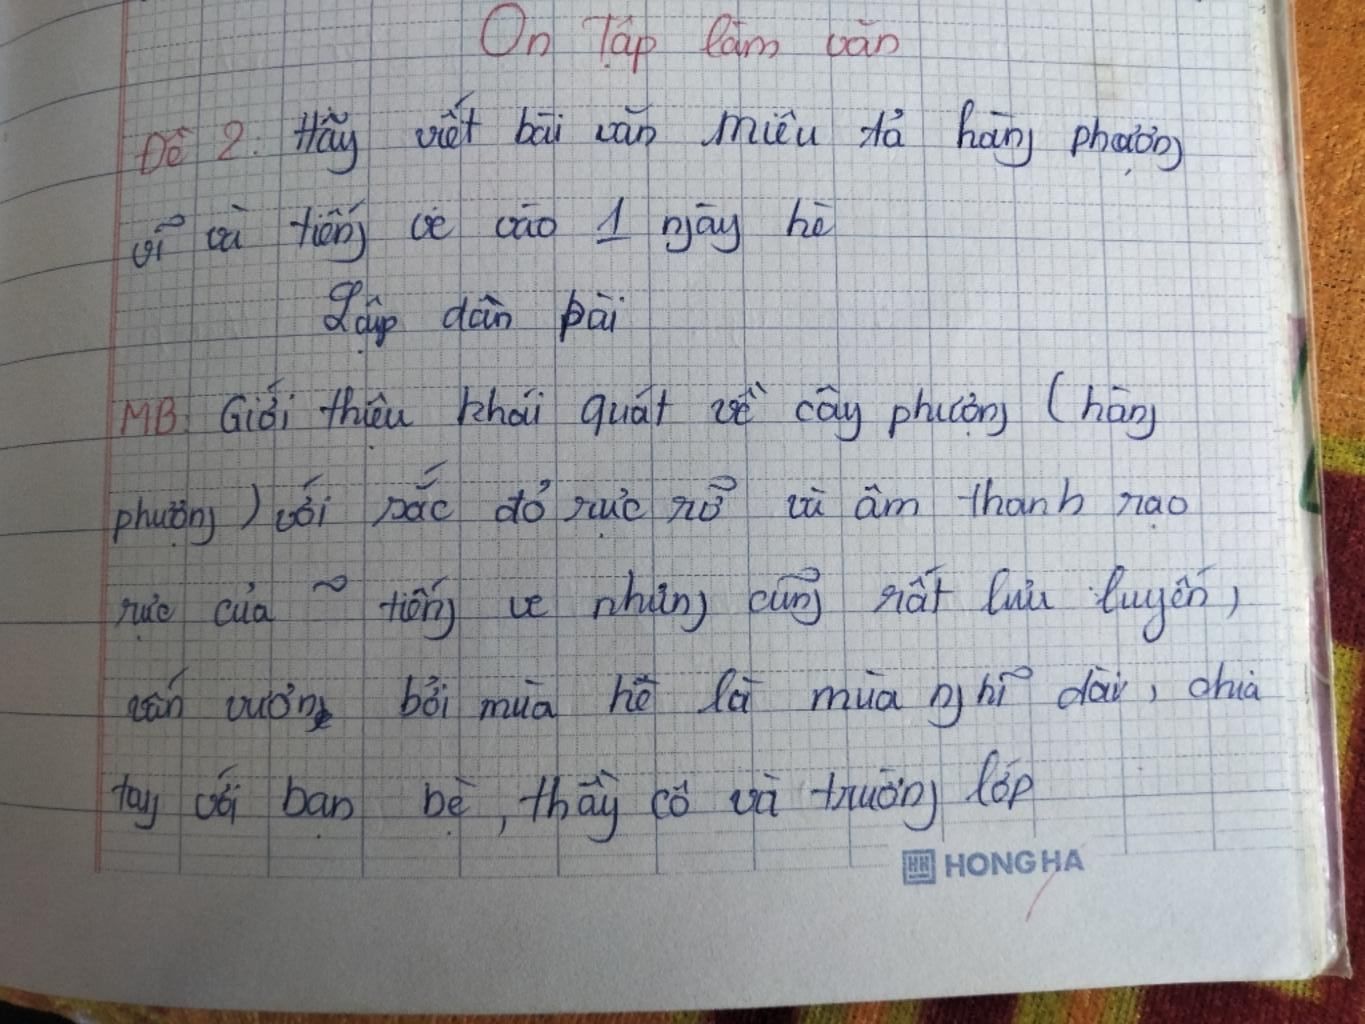 Ôn Tập làm văn
Đề 2: Hãy viết bài văn miêu tả hàng phượng
vĩ và tiếng ve vào 1 ngày hè
Lập dàn bài
MB: Giới thiệu khái quát về cây phượng (hàng
phượng) với sắc đỏ rực rỡ và âm thanh rạo
rực của tiếng ve nhưng cũng rất lưu luyến,
vấn vương bởi mùa hè là mùa nghỉ dài, chia
tay với bạn bè, thầy cô và trường lớp
HH HONG HA